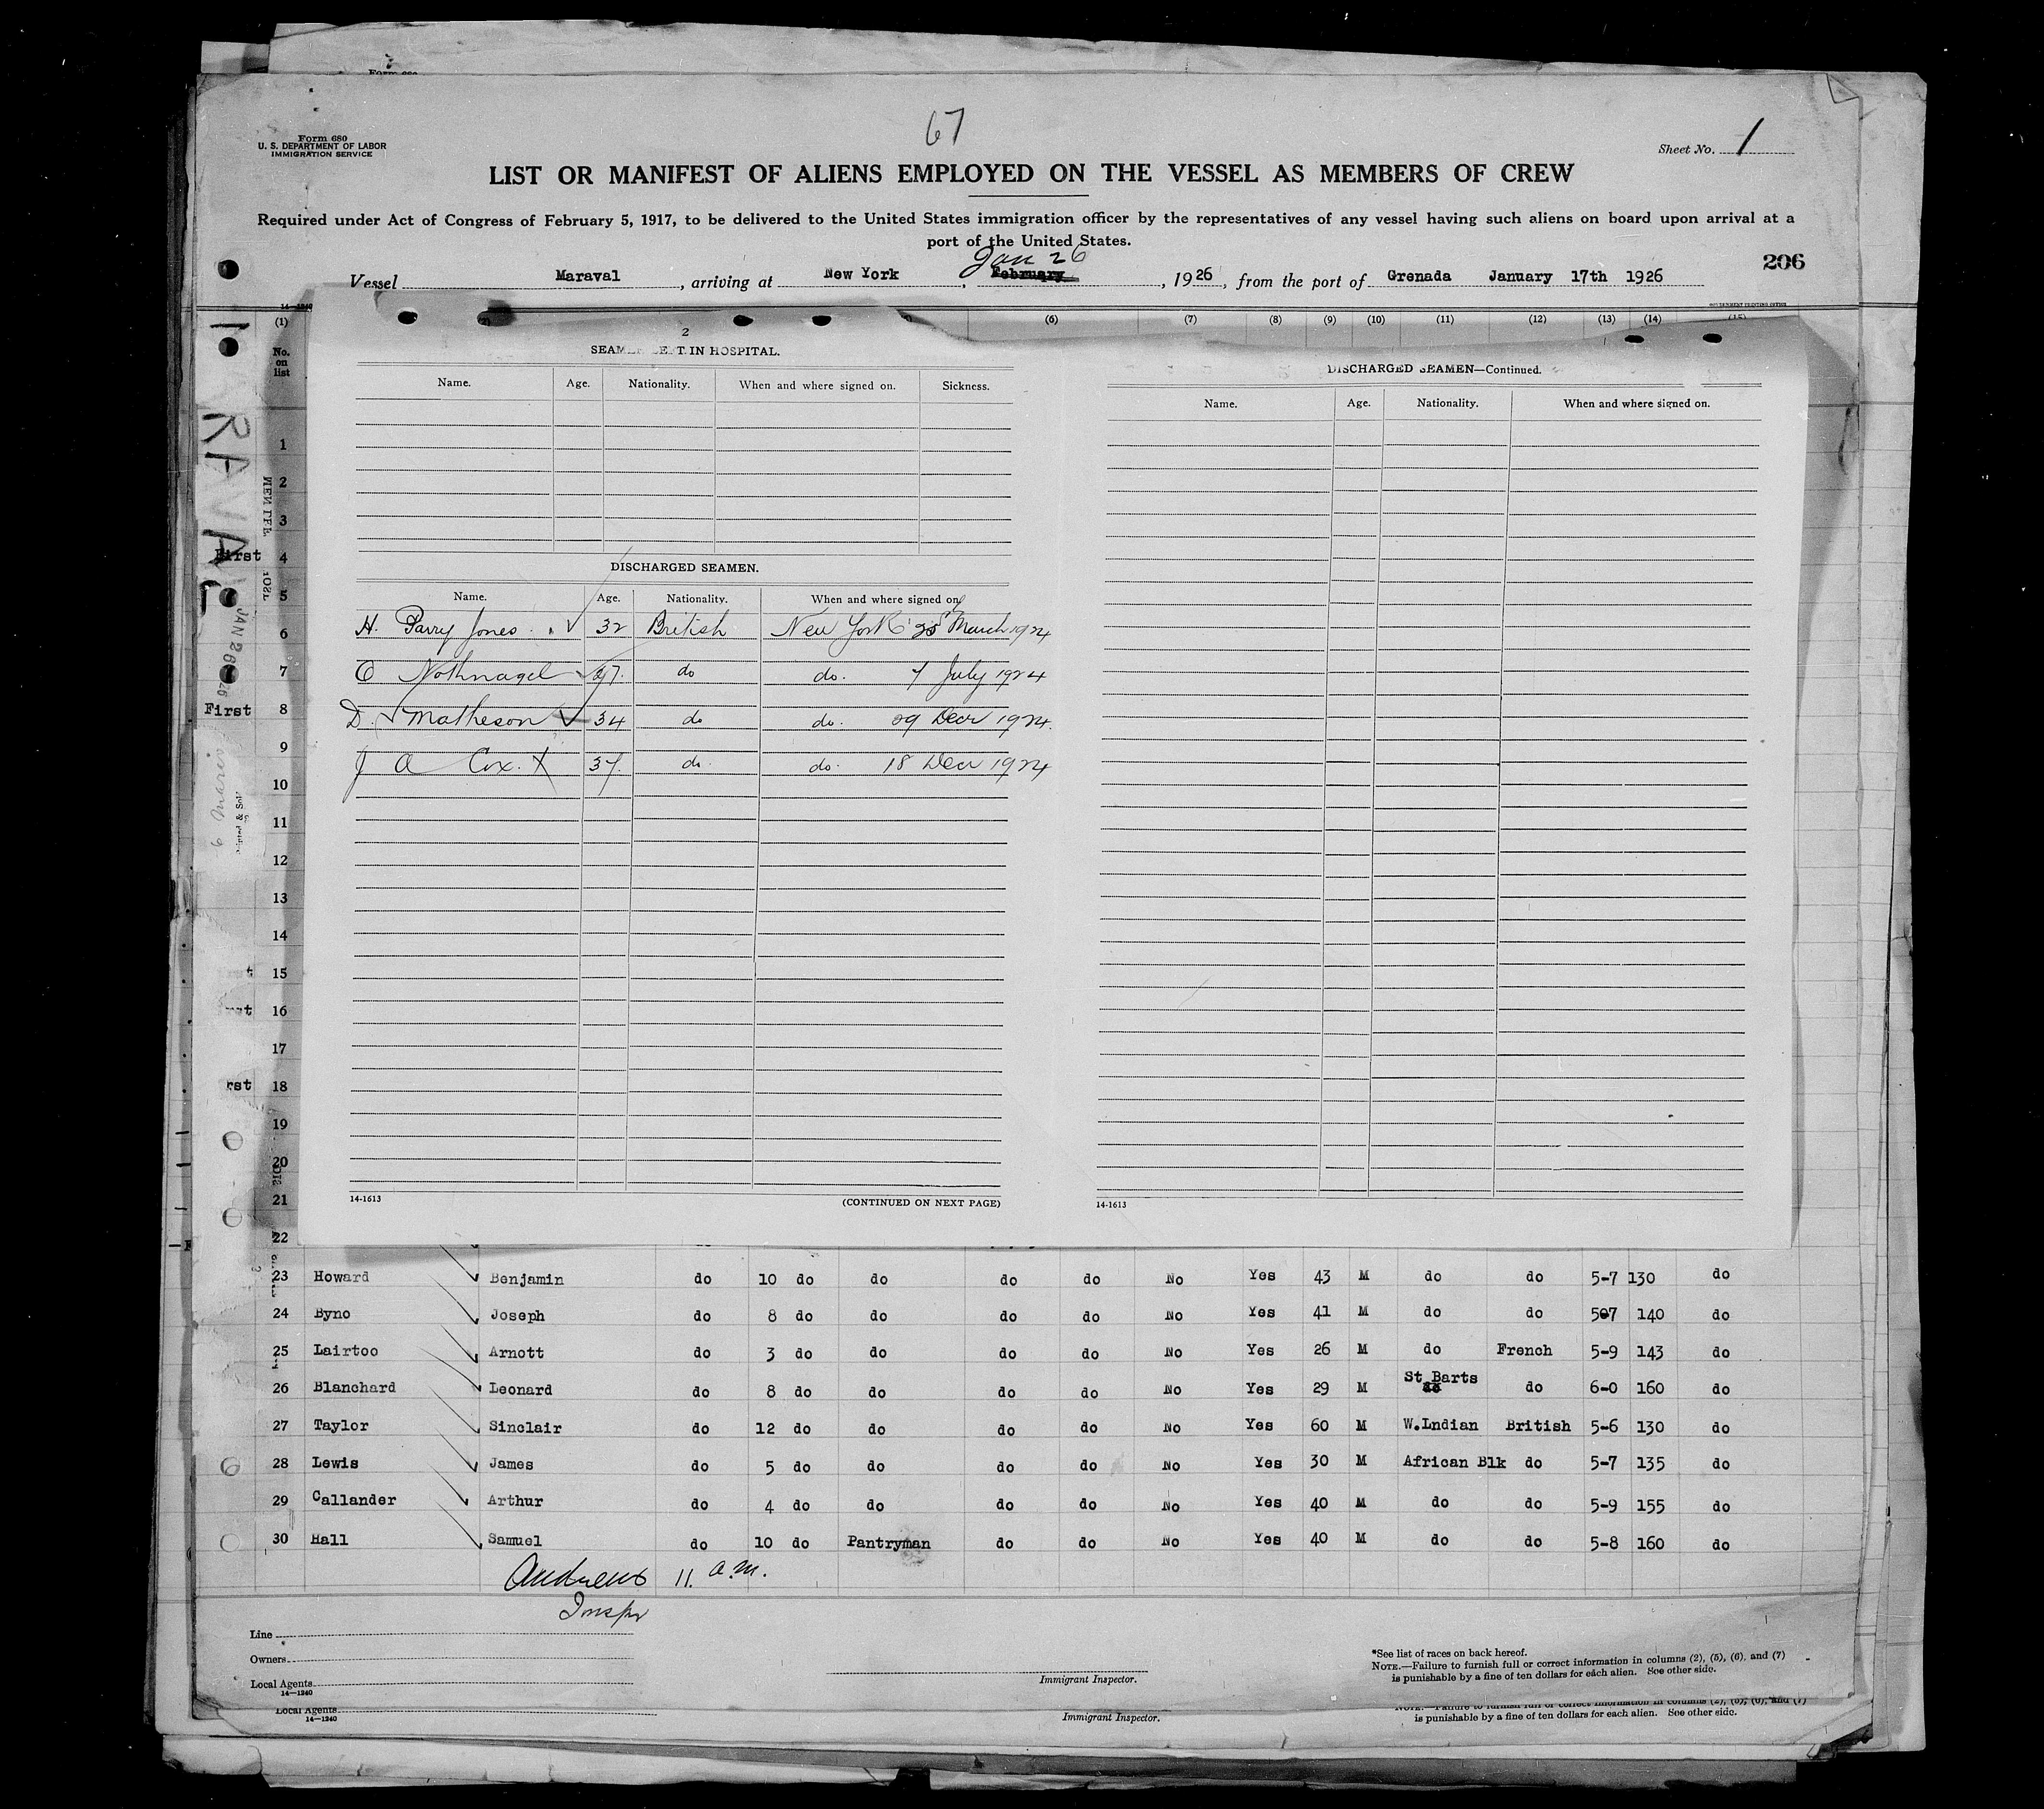 67
Form 680
U. S. DEPARTMENT OF LABOR
IMMIGRATION SERVICE
Sheet No. 1
LIST OR MANIFEST OF ALIENS EMPLOYED ON THE VESSEL AS MEMBERS OF CREW
Required under Act of Congress of February 5, 1917, to be delivered to the United States immigration officer by the representatives of any vessel having such aliens on board upon arrival at a
port of the United States.
Jan 26
206
Vessel Maraval, arriving at New York, February, 1926, from the port of Grenada January 17th 1926
(1) (6) (7) (8) (9) (10) (11) (12) (13) (14)
No. on list
2
SEAMEN IN HOSPITAL.
Name. Age. Nationality. When and where signed on. Sickness.
DISCHARGED SEAMEN.
Name. Age. Nationality. When and where signed on
H. Parry Jones 32 British New York 25 March 1924
O Nothnagel 27. do do. 7 July 1924
D. Matheson 34 do do. 29 Decr 1924.
J A Cox. X 37. do. do. 18 Decr 1924
14-1613 (CONTINUED ON NEXT PAGE)
DISCHARGED SEAMEN—Continued.
Name. Age. Nationality. When and where signed on.
14-1613
1
2
3
First 4
5
6
7
First 8
9
10
11
12
13
14
15
16
17
18
19
20
21
22
23 Howard Benjamin do 10 do do do do No Yes 43 M do do 5-7 130 do
24 Byno Joseph do 8 do do do do No Yes 41 M do do 507 140 do
25 Lairtoo Arnott do 3 do do do do No Yes 26 M do French 5-9 143 do
26 Blanchard Leonard do 8 do do do do No Yes 29 M St Barts do 6-0 160 do
27 Taylor Sinclair do 12 do do do do No Yes 60 M W.Lndian British 5-6 130 do
28 Lewis James do 5 do do do do No Yes 30 M African Blk do 5-7 135 do
29 Callander Arthur do 4 do do do do No Yes 40 M do do 5-9 155 do
30 Hall Samuel do 10 do Pantryman do do No Yes 40 M do do 5-8 160 do
Andrews 11. a.m.
Inspr
Line
Owners
Local Agents
14—1240
Immigrant Inspector.
*See list of races on back hereof.
NOTE.—Failure to furnish full or correct information in columns (2), (5), (6), and (7)
is punishable by a fine of ten dollars for each alien. See other side.
Local Agents
14—1240
Immigrant Inspector.
NOTE.—Failure to furnish full or correct information in columns (2), (5), (6), and (7)
is punishable by a fine of ten dollars for each alien. See other side.
MARAVAL
JAN 26